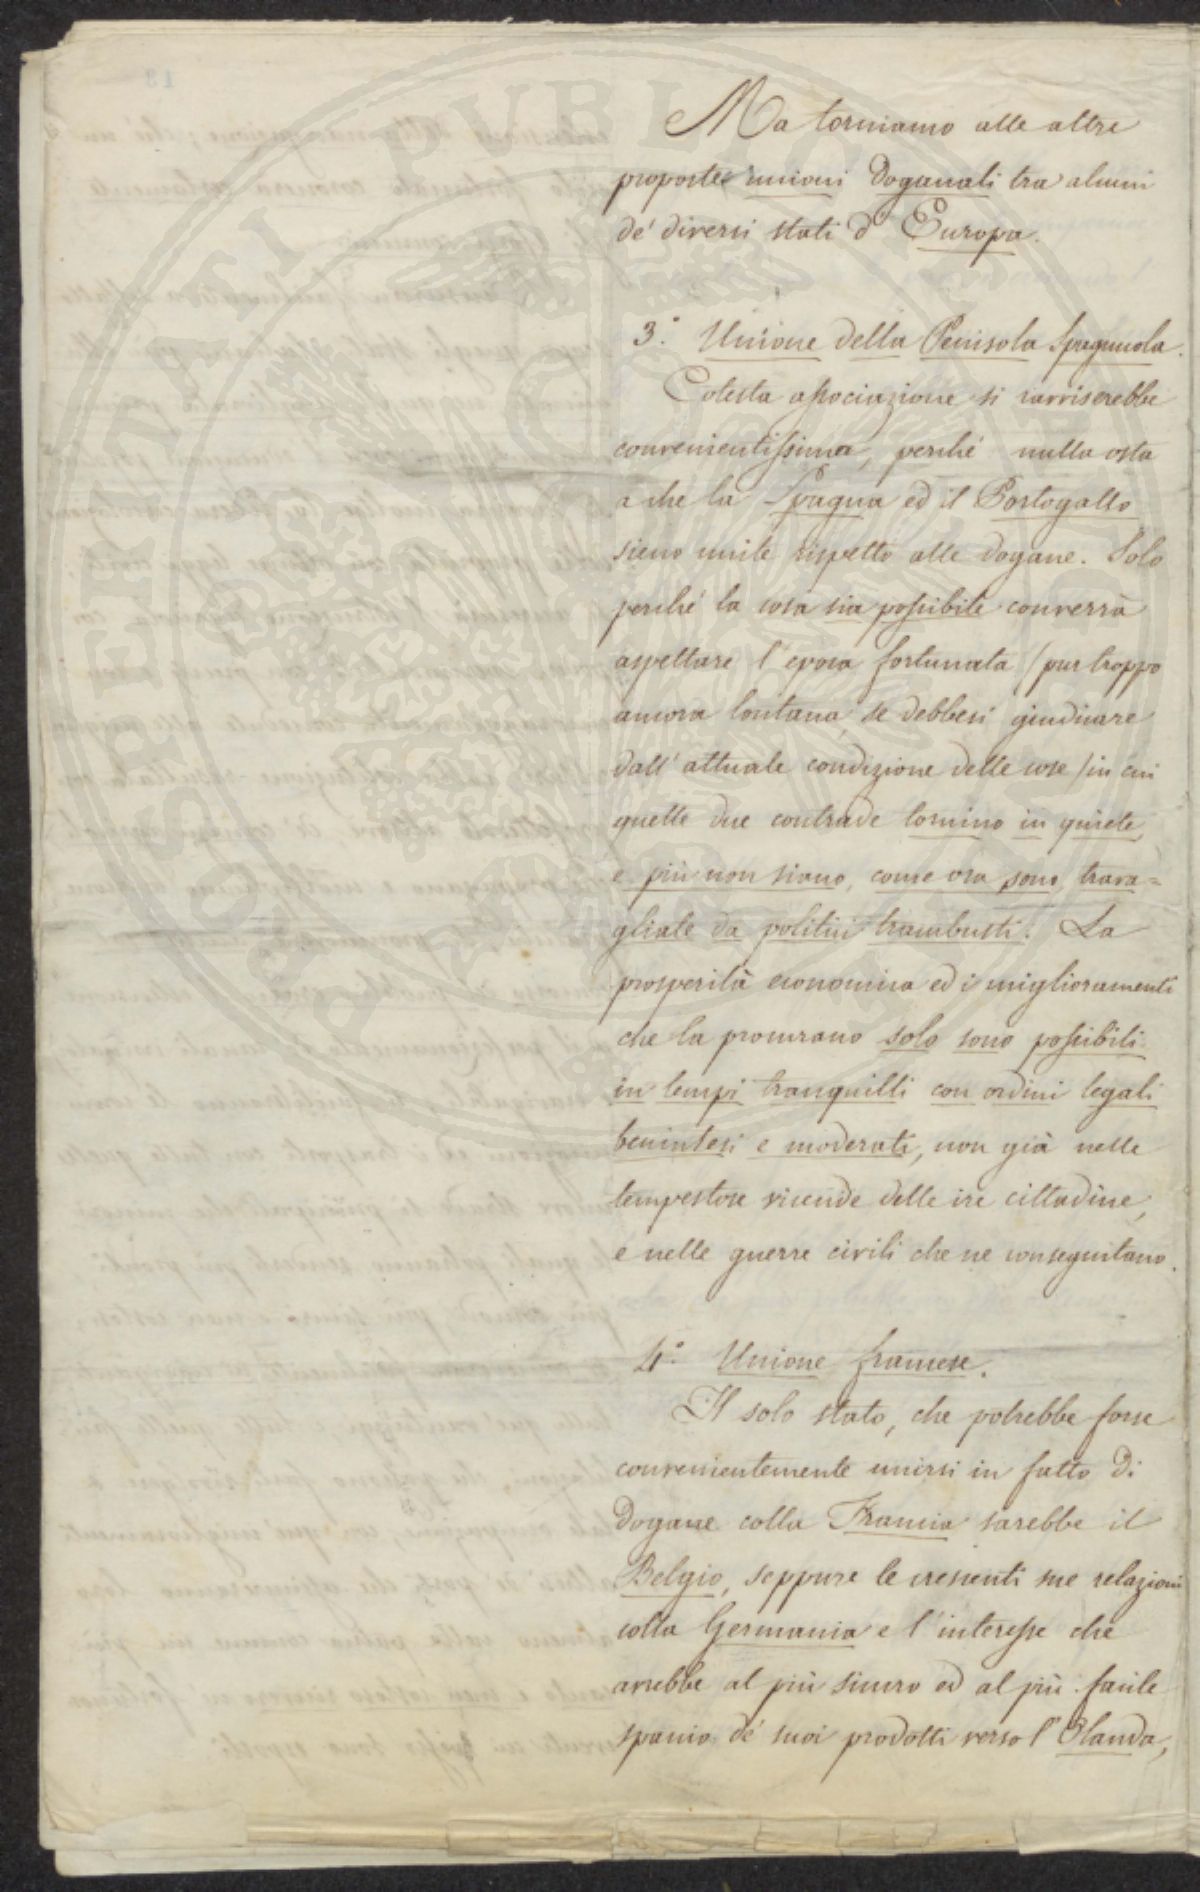 Ma torniamo alle altre
proposte unioni doganali tra alcuni
de' diversi stati d'Europa.
3.° Unione della Penisola Spagnuola.
Cotesta associazione si ravviserebbe
convenientissima, perché nulla osta
a che la Spagna ed il Portogallo
sieno unite rispetto alle dogane. Solo
perché la cosa sia possibile converrà
aspettare l'epoca fortunata (pur troppo
ancora lontana, se debbesi giudicare
dall'attuale condizione delle cose) in cui
quelle due contrade tornino in quiete,
e più non siano, come ora sono, trava=
gliate da politici trambusti. La
prosperità economica ed i miglioramenti
che la procurano solo sono possibili
in tempi tranquilli con ordini legali
benintesi e moderati, non già nelle
tempestose vicende delle ire cittadine,
e nelle guerre civili che ne conseguitano.
4.° Unione francese.
Il solo stato, che potrebbe forse
convenientemente unirsi in fatto di
Dogane colla Francia sarebbe il
Belgio, seppure le crescenti sue relazioni
colla Germania e l'interesse che
avrebbe al più sicuro ed al più facile
spaccio de' suoi prodotti verso l'Olanda,